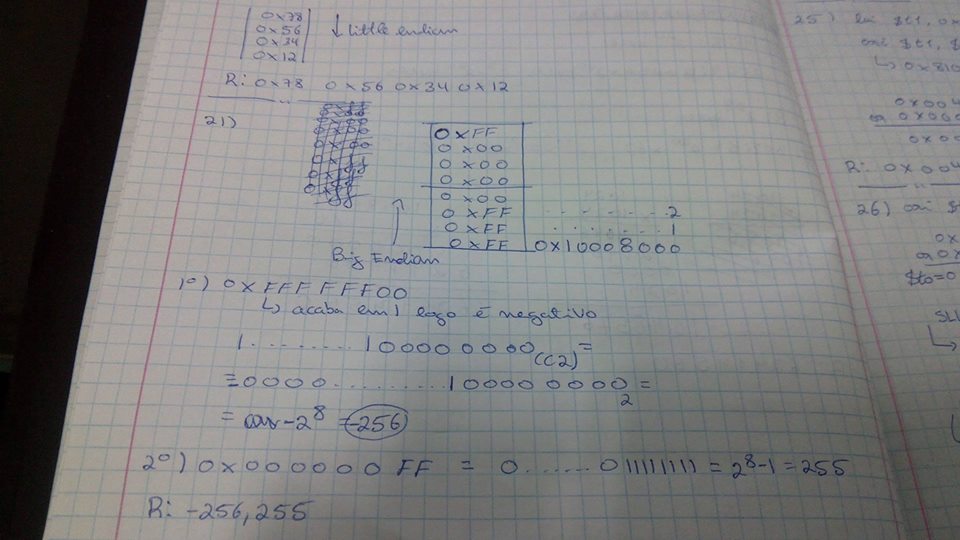 0x78
0x56
0x34
0x12
↓ Little endian
R: 0x78 0x56 0x34 0x12
21)
0xFF
0x00
0x00
0x00
0x00
0xFF ........ 2
0xFF ........ 1
0xFF 0x10008000
Big Endian
1º) 0xFFFFFF00
↳ acaba em 1 logo é negativo
1.........100000000(C2) =
=0000.........100000000₂ =
= -2⁸ = -256
2º) 0x000000FF = 0.......011111111 = 2⁸-1 = 255
R: -256, 255
25) lui $t1, 0x
ori $t1, $
↳ 0x810
0x004
0x000
0x00
R: 0x004
26) ori $
0x
0x
$t0=0
SLL
↳